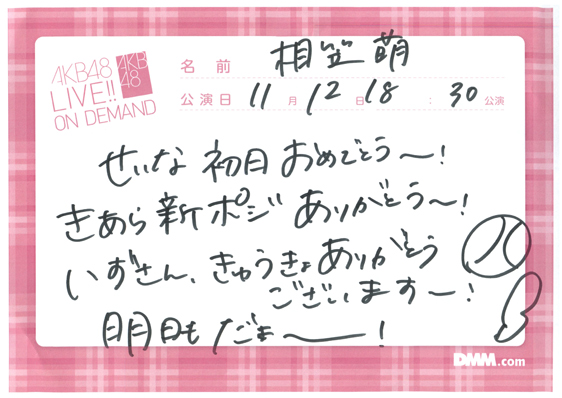 AKB48
LIVE!!
ON DEMAND
AKB
48
名前 相笠萌
公演日 11月12日18:30公演
せいな 初日 おめでとう〜!
きあら 新ポジ ありがとう〜!
いずさん、きゅうきょ ありがとう
ございます〜!
明日もだよ〜!
DMM.com